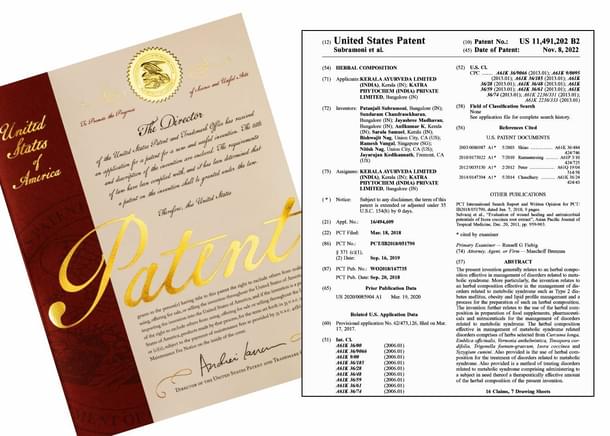 United
States
of
America
To Promote the Progress
of Science and Useful Arts
The Director
of the United States Patent and Trademark Office has received
an application for a patent for a new and useful invention. The title
and description of the invention are enclosed. The requirements
of law have been complied with, and it has been determined that
a patent on the invention shall be granted under the law.
Therefore, the United States
Patent
Maintenance Fee Notice on the inside of the cover.
DIRECTOR OF THE UNITED STATES PATENT AND TRADEMARK
(12) United States Patent
Subramoni et al.
(10) Patent No.: US 11,491,202 B2
(45) Date of Patent: Nov. 8, 2022
(54) HERBAL COMPOSITION
(71) Applicants: KERALA AYURVEDA LIMITED
(INDIA), Kerala (IN); KATRA
PHYTOCHEM (INDIA) PRIVATE
LIMITED, Bangalore (IN)
(72) Inventors: Patanjali Subramoni, Bangalore (IN);
Sundaram Chandrasekharan,
Bangalore (IN); Jayashree Madhavan,
Bangalore (IN); Anilkumar K, Kerala
(IN); Sarala Samuel, Kerala (IN);
Bishwajit Nag, Union City, CA (US);
Ramesh Vangal, Singapore (SG);
Nitish Nag, Union City, CA (US);
Jayarajan Kodikannath, Fremont, CA
(US)
(73) Assignees: KERALA AYURVEDA LIMITED
(INDIA), Kerala (IN); KATRA
PHYTOCHEM (INDIA) PRIVATE
LIMITED, Bangalore (IN)
( * ) Notice: Subject to any disclaimer, the term of this
patent is extended or adjusted under 35
U.S.C. 154(b) by 0 days.
(21) Appl. No.: 16/494,609
(22) PCT Filed: Mar. 18, 2018
(86) PCT No.: PCT/IB2018/051790
§ 371 (c)(1),
(2) Date: Sep. 16, 2019
(87) PCT Pub. No.: WO2018/167735
PCT Pub. Date: Sep. 20, 2018
(65) Prior Publication Data
US 2020/0085904 A1 Mar. 19, 2020
Related U.S. Application Data
(60) Provisional application No. 62/473,126, filed on Mar.
17, 2017.
(51) Int. Cl.
A61K 36/00 (2006.01)
A61K 36/9066 (2006.01)
A61K 9/00 (2006.01)
A61K 36/185 (2006.01)
A61K 36/28 (2006.01)
A61K 36/48 (2006.01)
A61K 36/59 (2006.01)
A61K 36/61 (2006.01)
A61K 36/74 (2006.01)
(52) U.S. Cl.
CPC ....... A61K 36/9066 (2013.01); A61K 9/0095
(2013.01); A61K 36/185 (2013.01); A61K
36/28 (2013.01); A61K 36/48 (2013.01); A61K
36/59 (2013.01); A61K 36/61 (2013.01); A61K
36/74 (2013.01); A61K 2236/331 (2013.01);
A61K 2236/333 (2013.01)
(58) Field of Classification Search
None
See application file for complete search history.
(56) References Cited
U.S. PATENT DOCUMENTS
OTHER PUBLICATIONS
PCT International Search Report and Written Opinion for PCT/
IB2018/051790, dated Jun. 7, 2018, 9 pages.
Selvaraj et al., "Evaluation of wound healing and antimicrobial
potentials of Ixora coccinea root extract", Asian Pacific Journal of
Tropical Medicine, Dec. 20, 2011, pp. 959-963.
* cited by examiner
Primary Examiner — Russell G Fiebig
(74) Attorney, Agent, or Firm — Marschall Brennan
(57) ABSTRACT
The present invention generally relates to an herbal compo-
sition effective in management of disorders related to meta-
bolic syndrome. More particularly, the invention relates to
an herbal composition effective in the management of dis-
orders related to metabolic syndrome such as Type 2 dia-
betes mellitus, obesity and lipid profile management and a
process for the preparation of such an herbal composition.
The invention further relates to the use of the herbal com-
position in preparation of food supplements, pharmaceuti-
cals and nutraceuticals for the management of disorders
related to metabolic syndrome. The herbal composition
effective in management of metabolic syndrome related
disorders comprises of herbs selected from Curcuma longa,
Emblica officinalis, Vernonia anthelmintica, Tinospora cor-
difolia, Trigonella foenum-graecum, Ixora coccinea and
Syzygium cumini. Also provided is the use of herbal com-
position for the treatment of disorders related to metabolic
syndrome. Also provided is a method of treating disorders
related to metabolic syndrome comprising administering to
a subject in need thereof a therapeutically effective amount
of the herbal composition of the present invention.
16 Claims, 7 Drawing Sheets